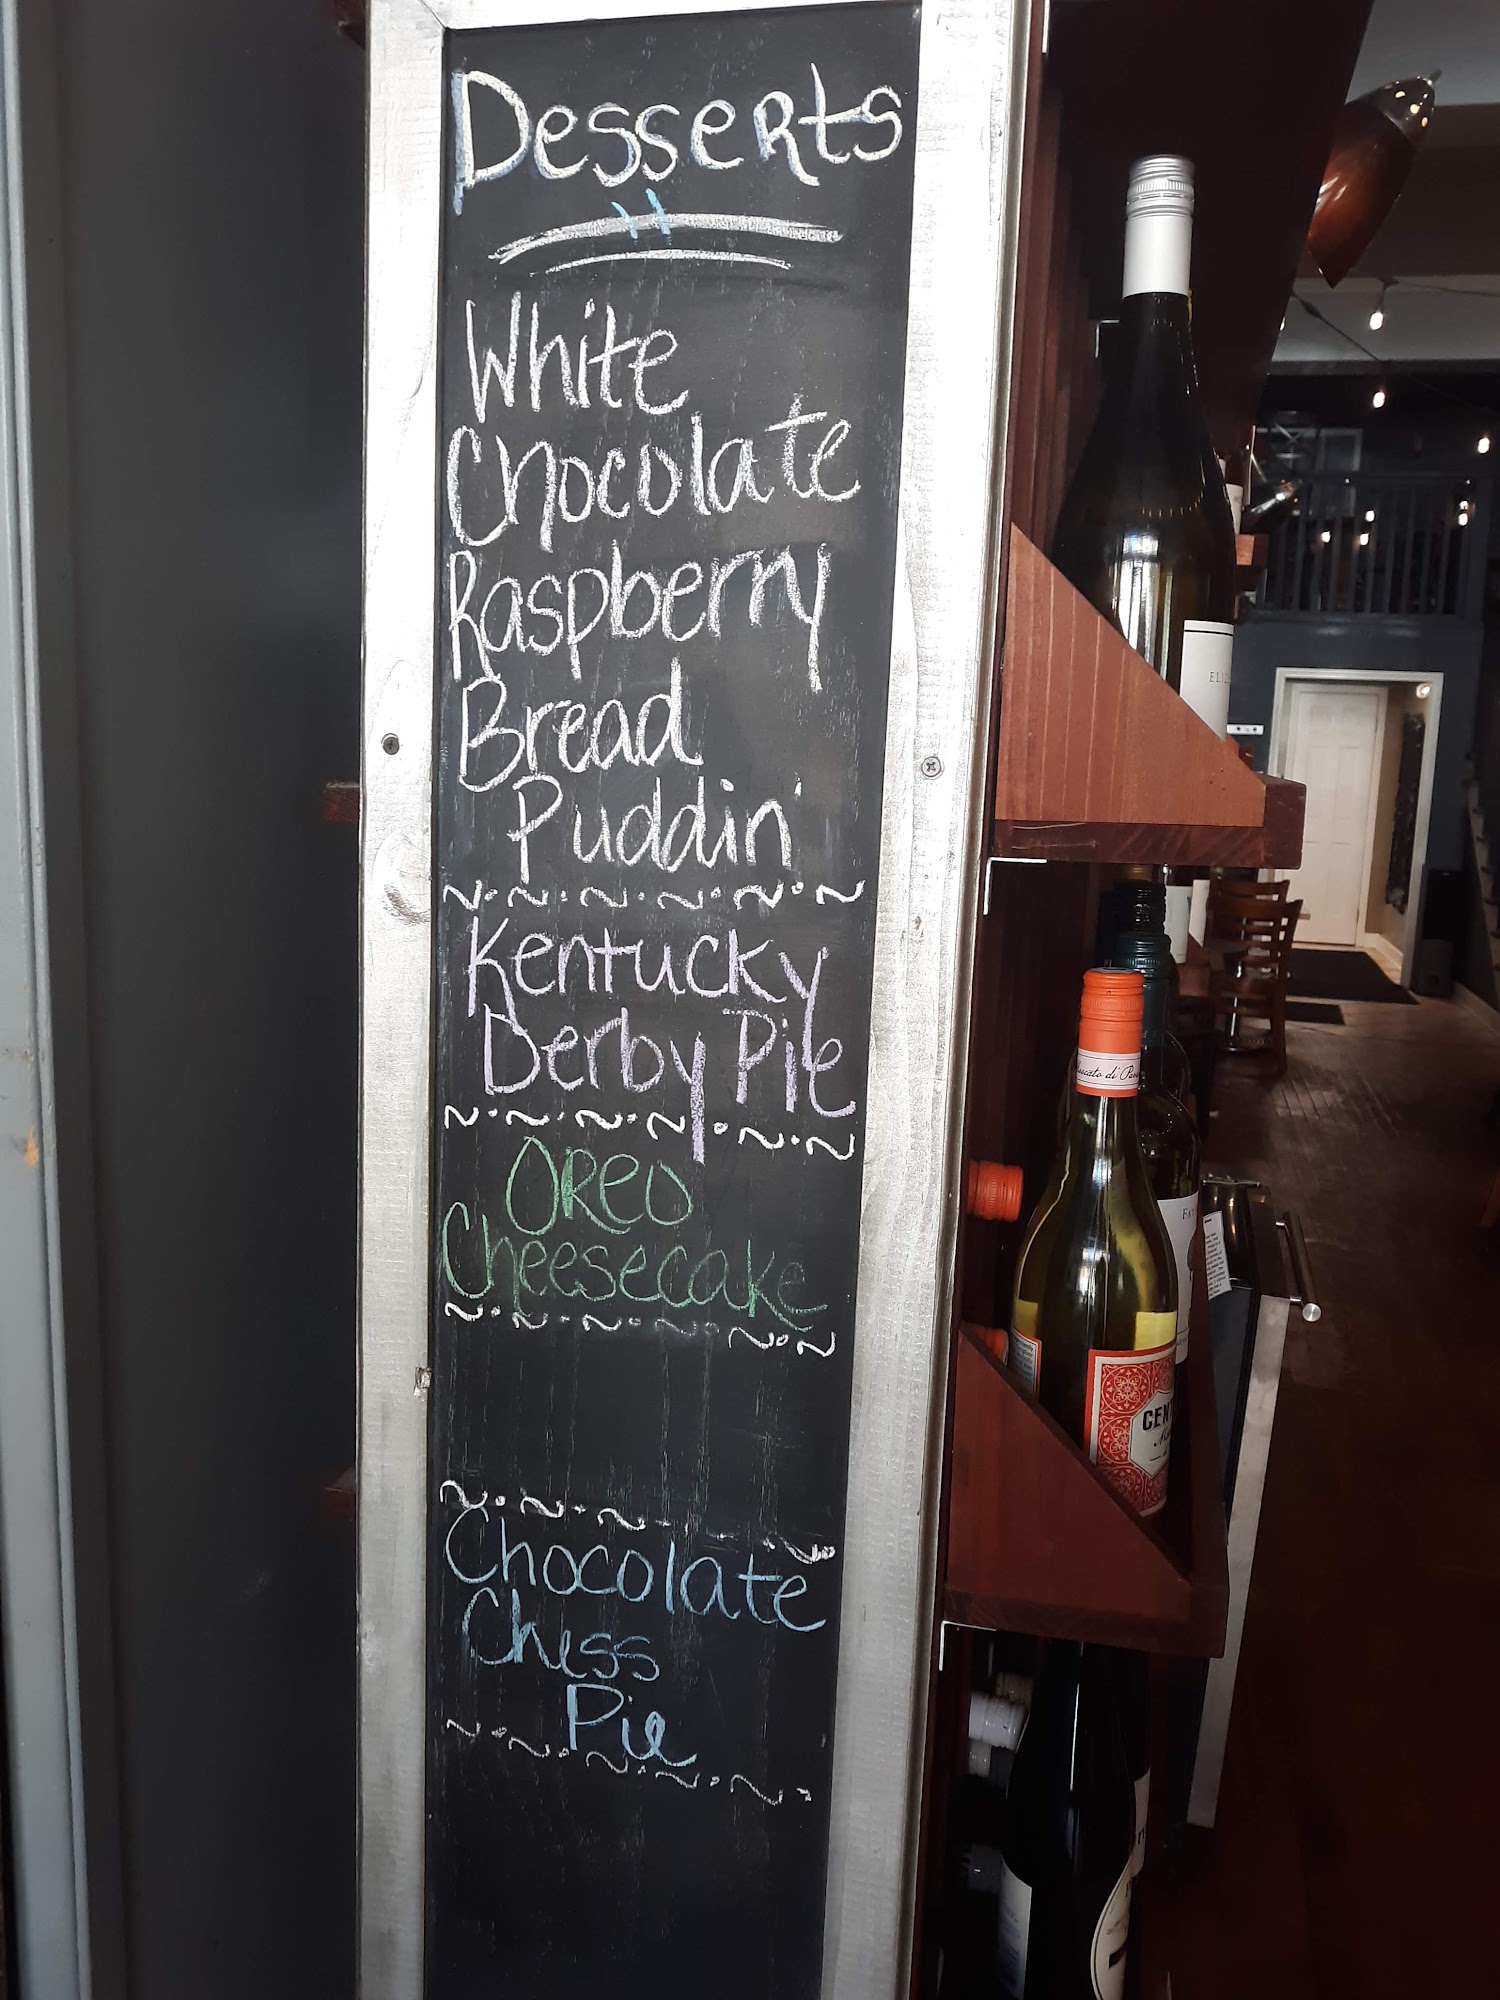 Desserts
White
Chocolate
Raspberry
Bread
Puddin'
Kentucky
Derby Pie
Oreo
Cheesecake
Chocolate
Chess
Pie
CENT